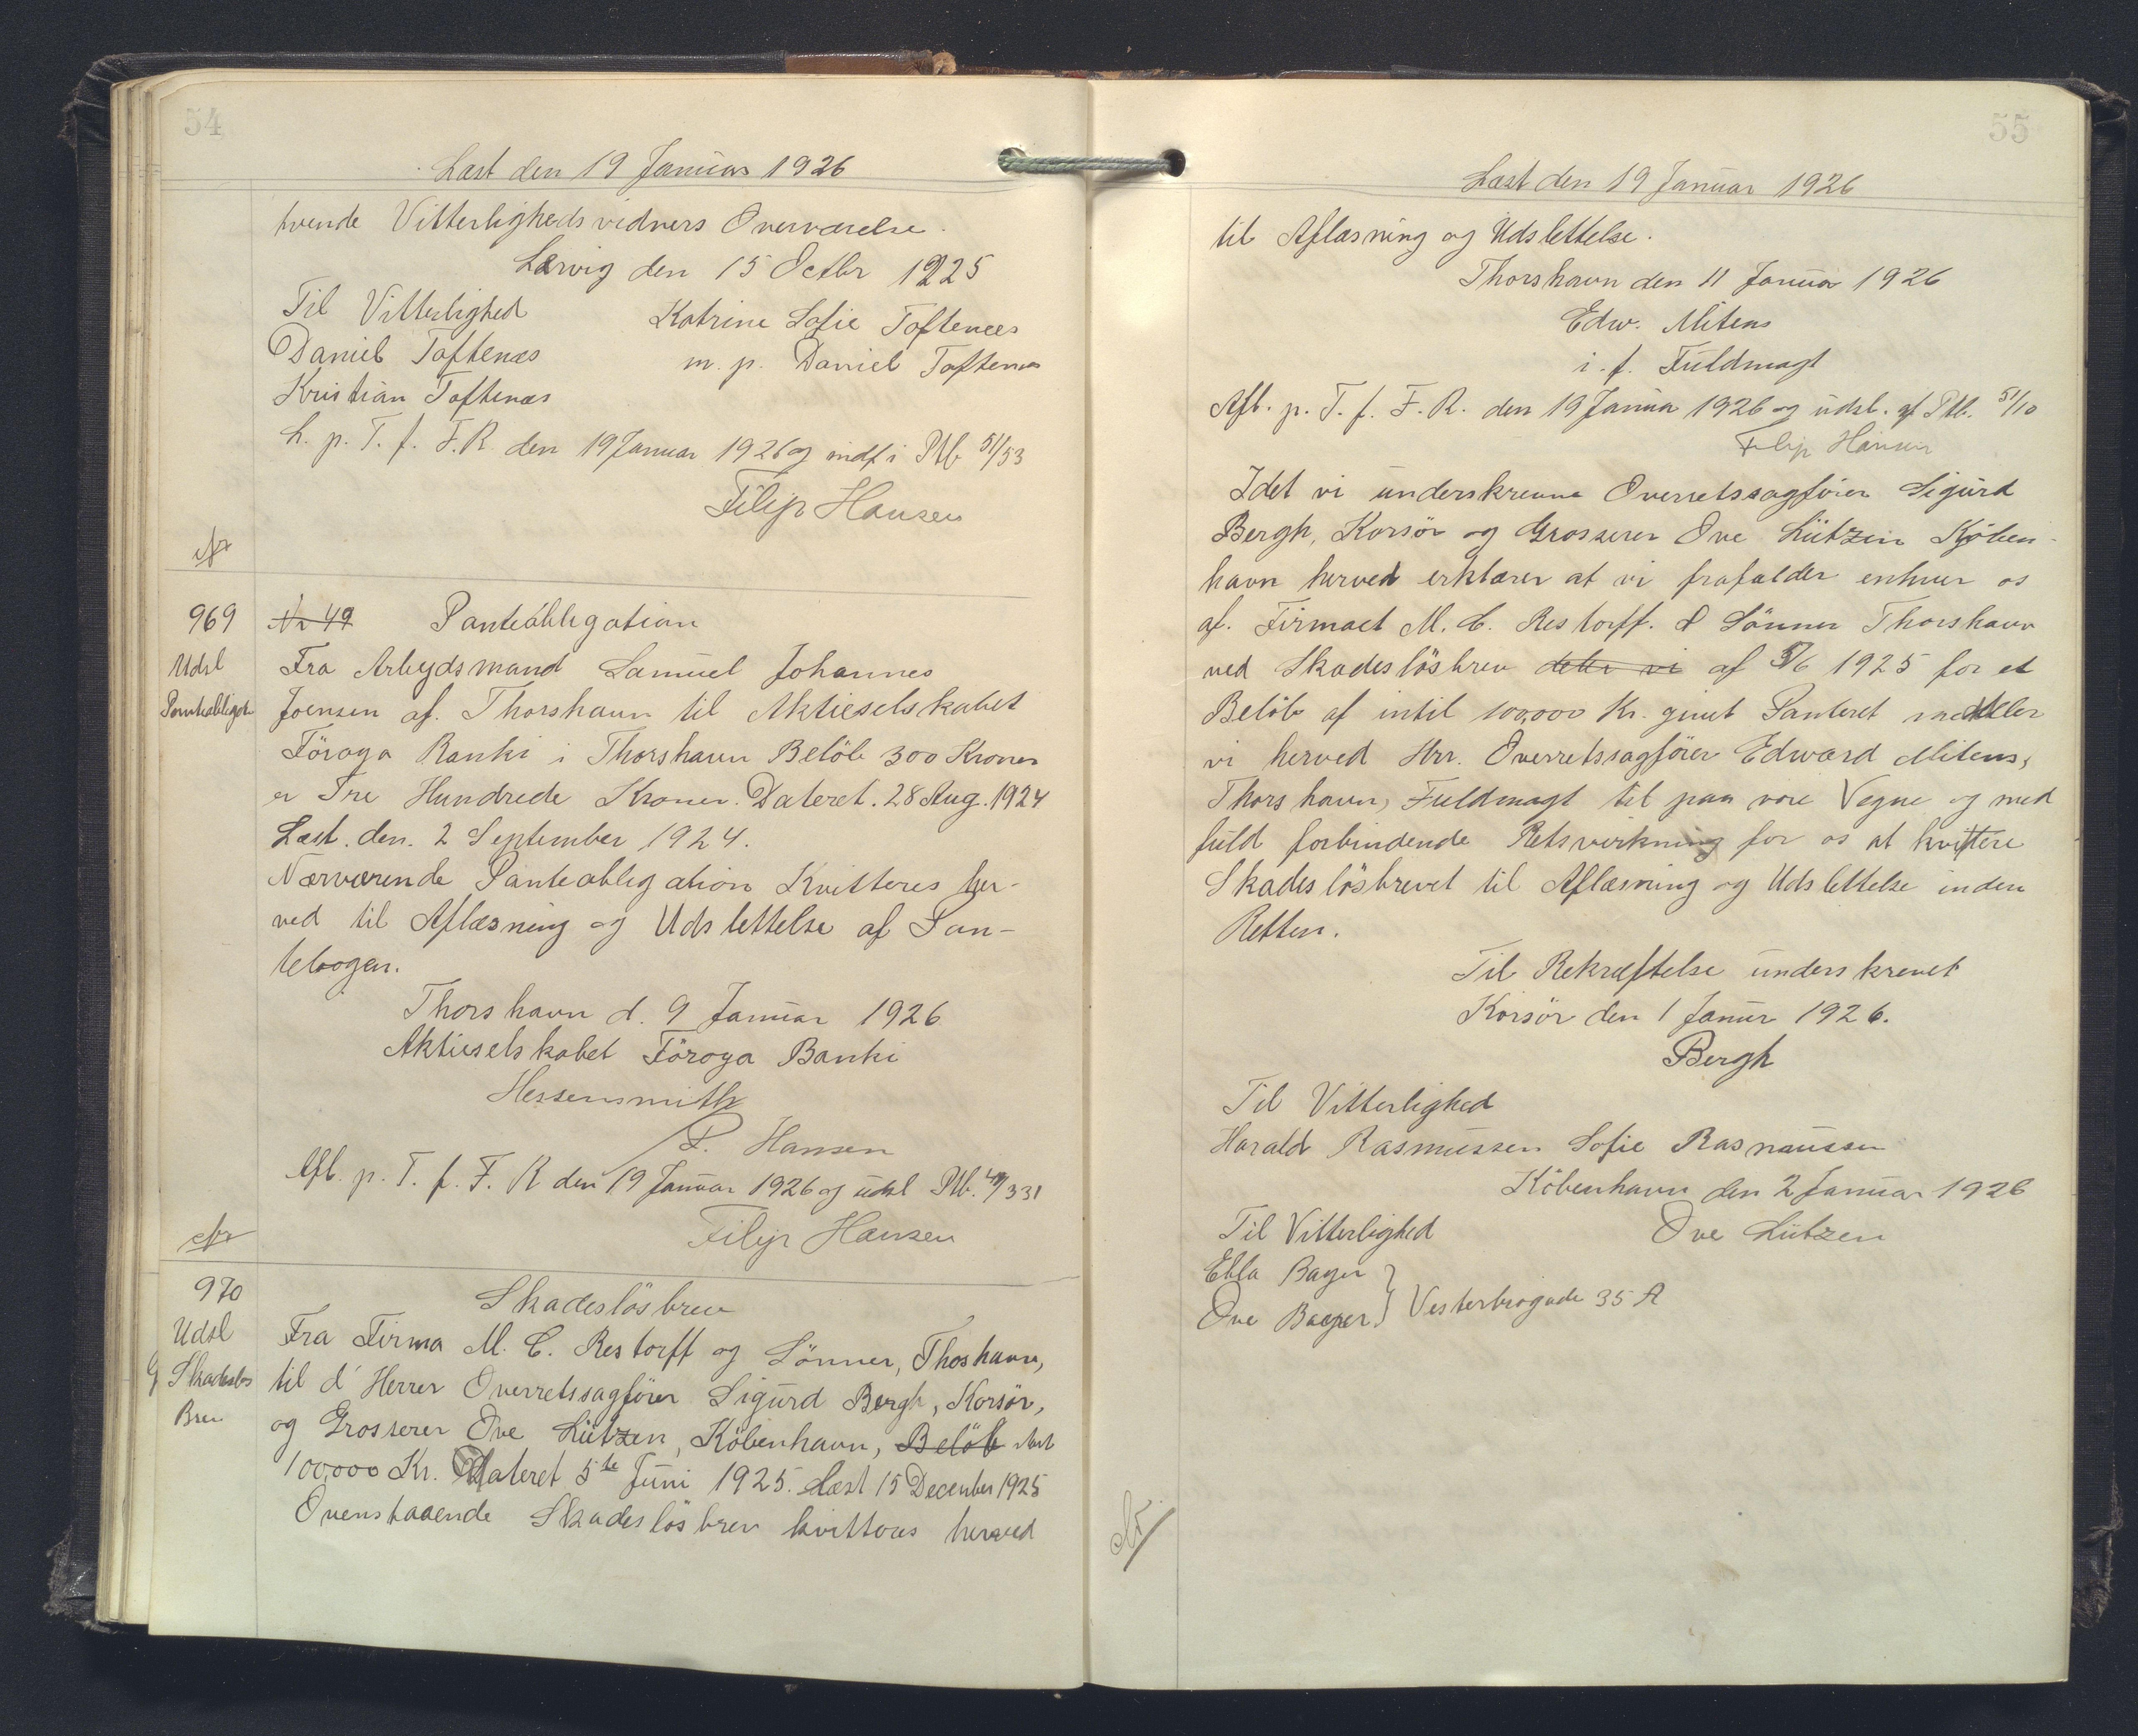 54
Læst den 19 Januar 1926
tvende Vitterlighedsvidners Overværelse.
Lervig den 15 Octbr 1925
Til Vitterlighed
Katrine Sofie Toftenæs
Daniel Toftenæs
m. p. Daniel Toftenæs
Kristian Toftenæs
L. p. T. f. F. R. den 19 Januar 1926 og indf i Ptb 51/53
Filip Hansen
969
Udsl
Panteobligat
Nr 49 Panteobligation
Fra Arbejdsmand Samuel Johannes
Joensen af. Thorshavn til Aktieselskabet
Föroya Banki i Thorshavn Belöb 300 Kroner
er Tre Hundrede Kroner. Dateret. 28 Aug. 1924
Læst. den. 2 September 1924.
Nærværende Panteobligation Kvitteres her-
ved til Aflæsning og Udslettelse af Pan-
tebogen.
Thorshavn d. 9 Januar 1926
Aktieselskabet Föroya Banki
Hessensmith
P. Hansen
Afl. p. T. f. F. R den 19 Januar 1926 og udsl Ptb. 49/331
Filip Hansen
970
Udsl
G Skadeslös
Brev
Skadeslösbrev
Fra Firma M. C. Restorff og Sönner, Thoshavn,
til d'Herrer Overretssagförer Sigurd Bergh, Korsör,
og Grosserer Ove Lützen, København, Belöb
100,000 Kr. Dateret 5te Juni 1925. Læst 15 December 1925
Ovenstaaende Skadeslösbrev kvitteres herved
55
Læst den 19 Januar 1926
til Aflæsning og Udslettelse.
Thorshavn den 11 Januar 1926
Edw. Mitens
i. f. Fuldmagt
Afl. p. T. f. F. R. den 19 Januar 1926 og udsl. af Ptb. 51/10
Filip Hansen
Idet vi underskrevne Overretssagförer Sigurd
Bergh, Korsör og Grosserer Ove Lützen Köben-
havn herved erklærer at vi frafalder enhver os
af. Firmaet M. C. Restorff. & Sönner Thorshavn
ved Skadeslösbrev dette vi af 5/6 1925 for et
Belöb af intil 100,000 Kr. givet Panteret meddeler
vi herved Hrr. Overretssagförer Edward Mitens,
Thorshavn, Fuldmagt til paa vore Vegne og med
fuld forbindende Retsvirkning for os at kvittere
Skadeslösbrevet til Aflæsning og Udslettelse inden
Retten.
Til Bekræftelse underskrevet
Korsör den 1 Janur 1926.
Bergh
Til Vitterlighed
Harald Rasmussen Sofie Rasmussen
Köbenhavn den 2 Januar 1926
Til Vitterlighed
Ove Lützen
Ebba Bager
Ove Bager } Vesterbrogade 35 A